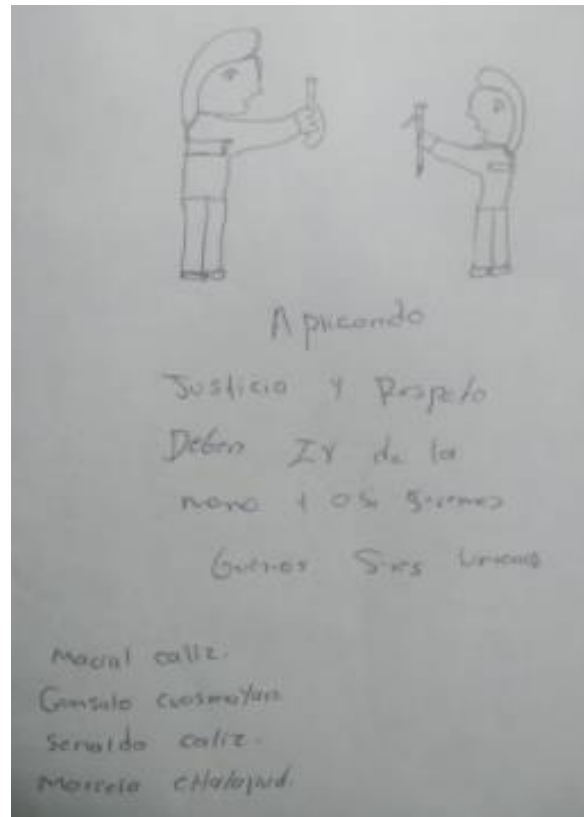 Aplicando
Justicia y Respeto
Deben Ir de la
mano y asi seremos
buenos Seres Umanos
Macial caliz.
Gonsalo cuasmayan
Senaldo caliz.
Marcela cHalapud.